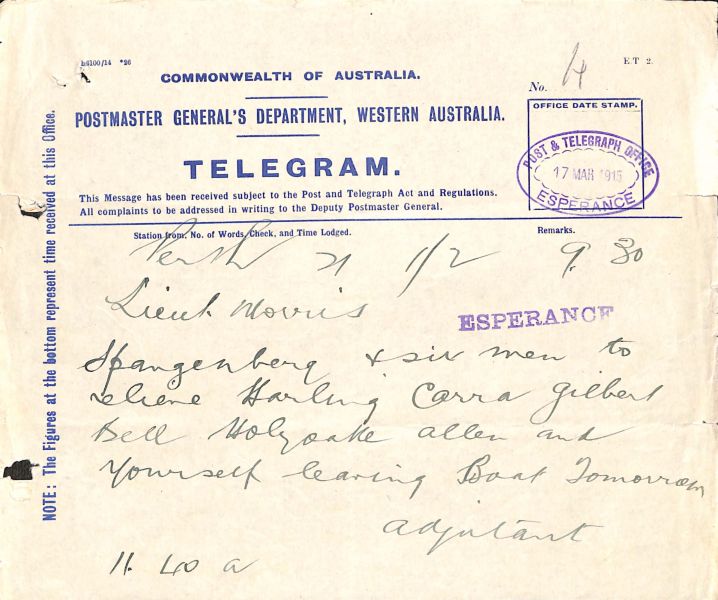 b6100/14 *26
E.T 2.
COMMONWEALTH OF AUSTRALIA.
No. 4
POSTMASTER GENERAL'S DEPARTMENT, WESTERN AUSTRALIA.
OFFICE DATE STAMP.
POST & TELEGRAPH OFFICE
17 MAR 1915
ESPERANCE
TELEGRAM.
This Message has been received subject to the Post and Telegraph Act and Regulations.
All complaints to be addressed in writing to the Deputy Postmaster General.
Station from, No. of Words, Check, and Time Lodged.
Remarks.
Perth 21 1/2 9.30
Lieut Morris
ESPERANCE
Spangenberg & six men to
relieve Harling Carra Gilbert
Bell Holyoake allen and
yourself leaving Boat Tomorrow
adjutant
11.40 a
NOTE: The Figures at the bottom represent time received at this Office.